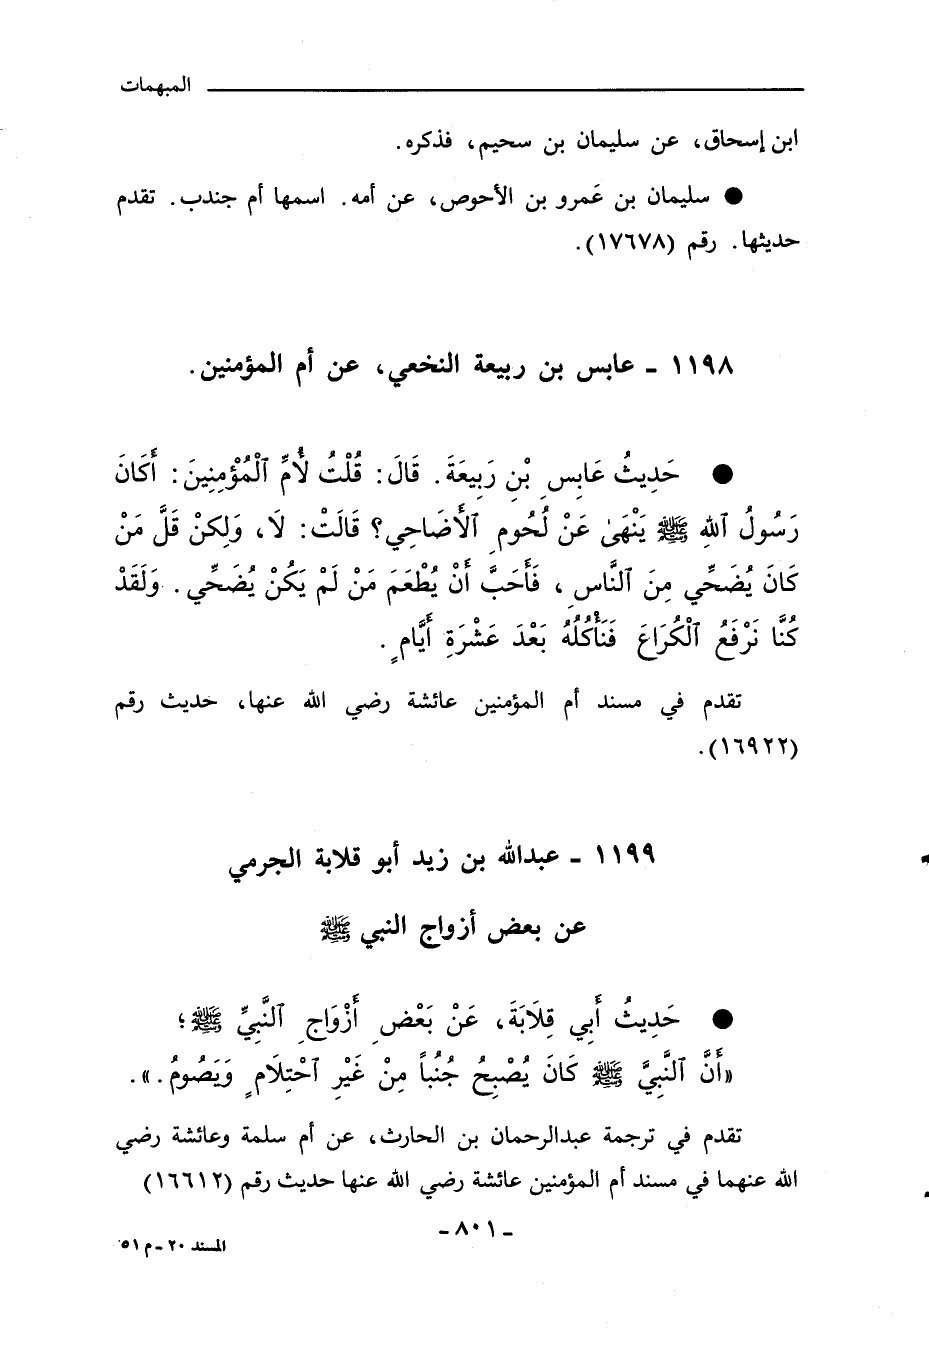 المبهمات
ابن إسحاق، عن سليمان بن سحيم، فذكره.
● سليمان بن عَمرو بن الأحوص، عن أمه. اسمها أم جندب. تقدم
حديثها. رقم (١٧٦٧٨).
١١٩٨ - عابس بن ربيعة النخعي، عن أم المؤمنين.
● حَدِيثُ عَابِسِ بْنِ رَبِيعَةَ. قَالَ: قُلْتُ لأُمِّ ٱلْمُؤْمِنِينَ: أَكَانَ
رَسُولُ ٱللهِ ﷺ يَنْهَىٰ عَنْ لُحُومِ ٱلأَضَاحِي؟ قَالَتْ: لَا، وَلٰكِنْ قَلَّ مَنْ
كَانَ يُضَحِّي مِنَ ٱلنَّاسِ، فَأَحَبَّ أَنْ يُطْعَمَ مَنْ لَمْ يَكُنْ يُضَحِّي. وَلَقَدْ
كُنَّا نَرْفَعُ ٱلْكُرَاعَ فَنَأْكُلُهُ بَعْدَ عَشْرَةِ أَيَّامٍ.
تقدم في مسند أم المؤمنين عائشة رضي الله عنها، حديث رقم
(١٦٩٢٢).
١١٩٩ - عبدالله بن زيد أبو قلابة الجرمي
عن بعض أزواج النبي ﷺ
● حَدِيثُ أَبِي قِلَابَةَ، عَنْ بَعْضِ أَزْوَاجِ ٱلنَّبِيِّ ﷺ؛
«أَنَّ ٱلنَّبِيَّ ﷺ كَانَ يُصْبِحُ جُنُباً مِنْ غَيْرِ ٱحْتِلَامٍ وَيَصُومُ.».
تقدم في ترجمة عبدالرحمان بن الحارث، عن أم سلمة وعائشة رضي
الله عنهما في مسند أم المؤمنين عائشة رضي الله عنها حديث رقم (١٦٦١٢)
- ٨٠١ -
المسند ٢٠ - م ٥١